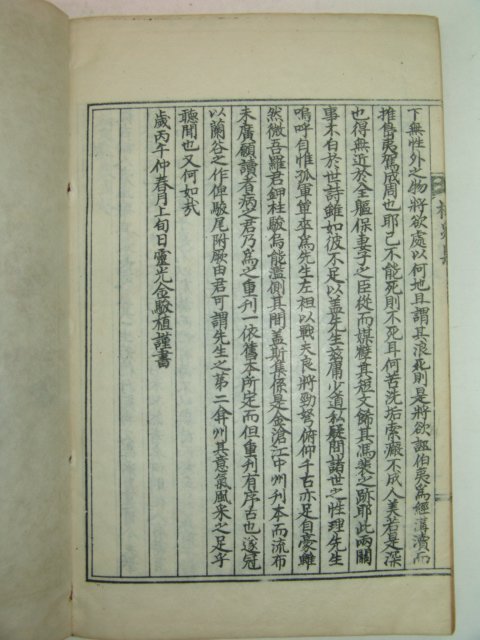 下無性外之物將欲處以何地且謂其浪死則是將欲誣伯夷爲經溝瀆而
推雋夷駕成周也耶己不能死則不死耳何苦洗垢索瘢不成人美若是深
也得無近於全軀保妻子之臣從而媒糱其短文飾其馮裴之跡耶此兩關
事不白於世詩雖如彼不足以盖先生玆庸少道私疑問諸世之性理先生
嗚呼自惟孤軍單卒爲先生左袒以戰夫良將勁弩俯仰千古亦足自豪雖
然微吾羅君鉀柱駿烏能濫側其間盖斯集係是金滄江中州刊本而流布
未廣顧讀者病之君乃爲之重刊一依舊本所定而但重刊有序古也遂冠
以蘭谷之作俾駿尾附厥由君可謂先生之第二弇州其意氣風采之足乎
聽聞也又何如㢤
歲丙午仲春月上旬日靈光金駿植謹書